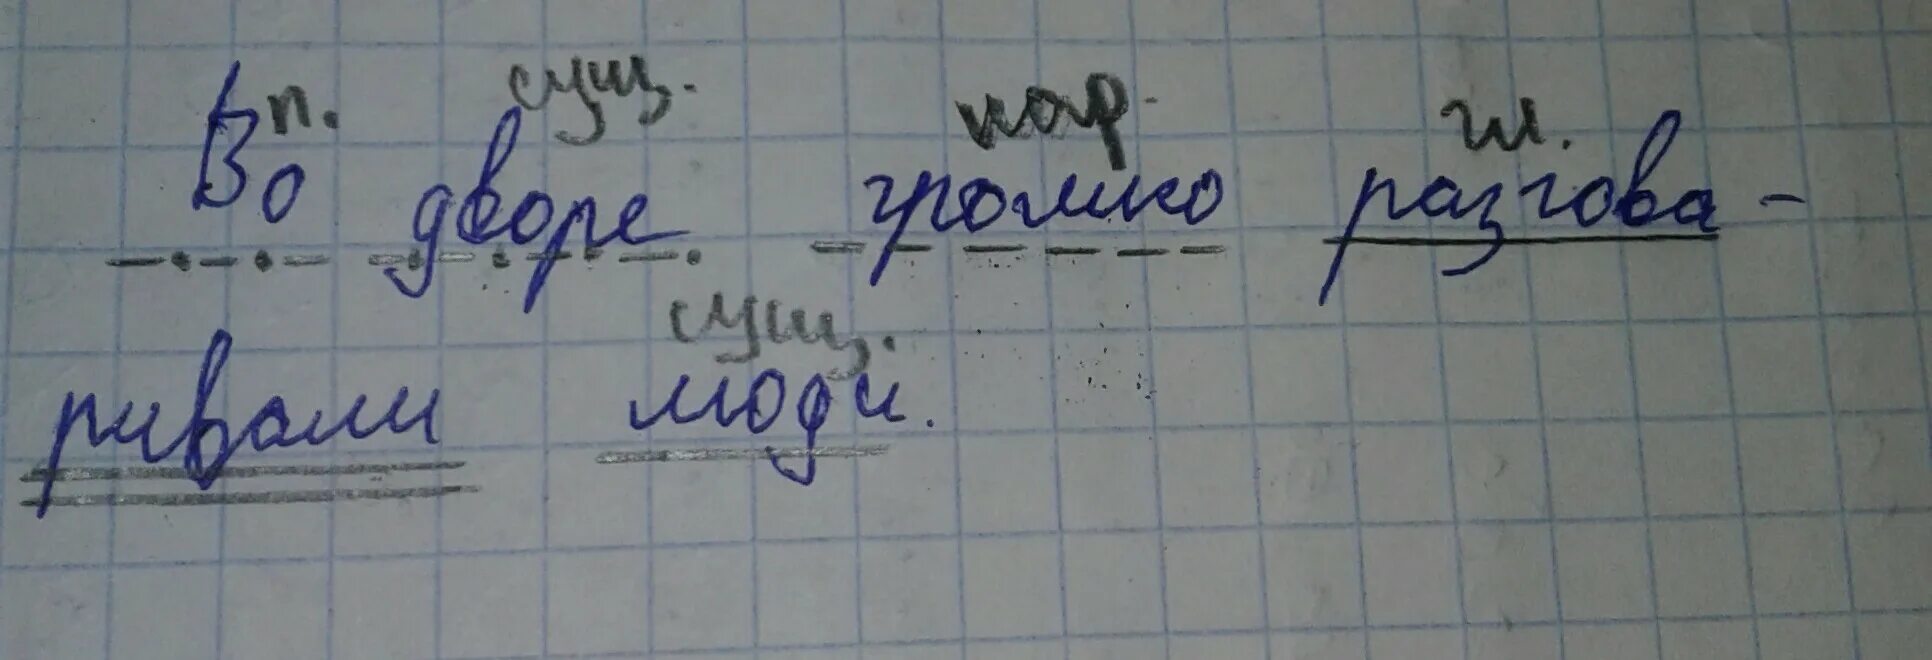 п. сущ. нар. гл.
Во дворе громко разгова-
сущ.
ривали люди.